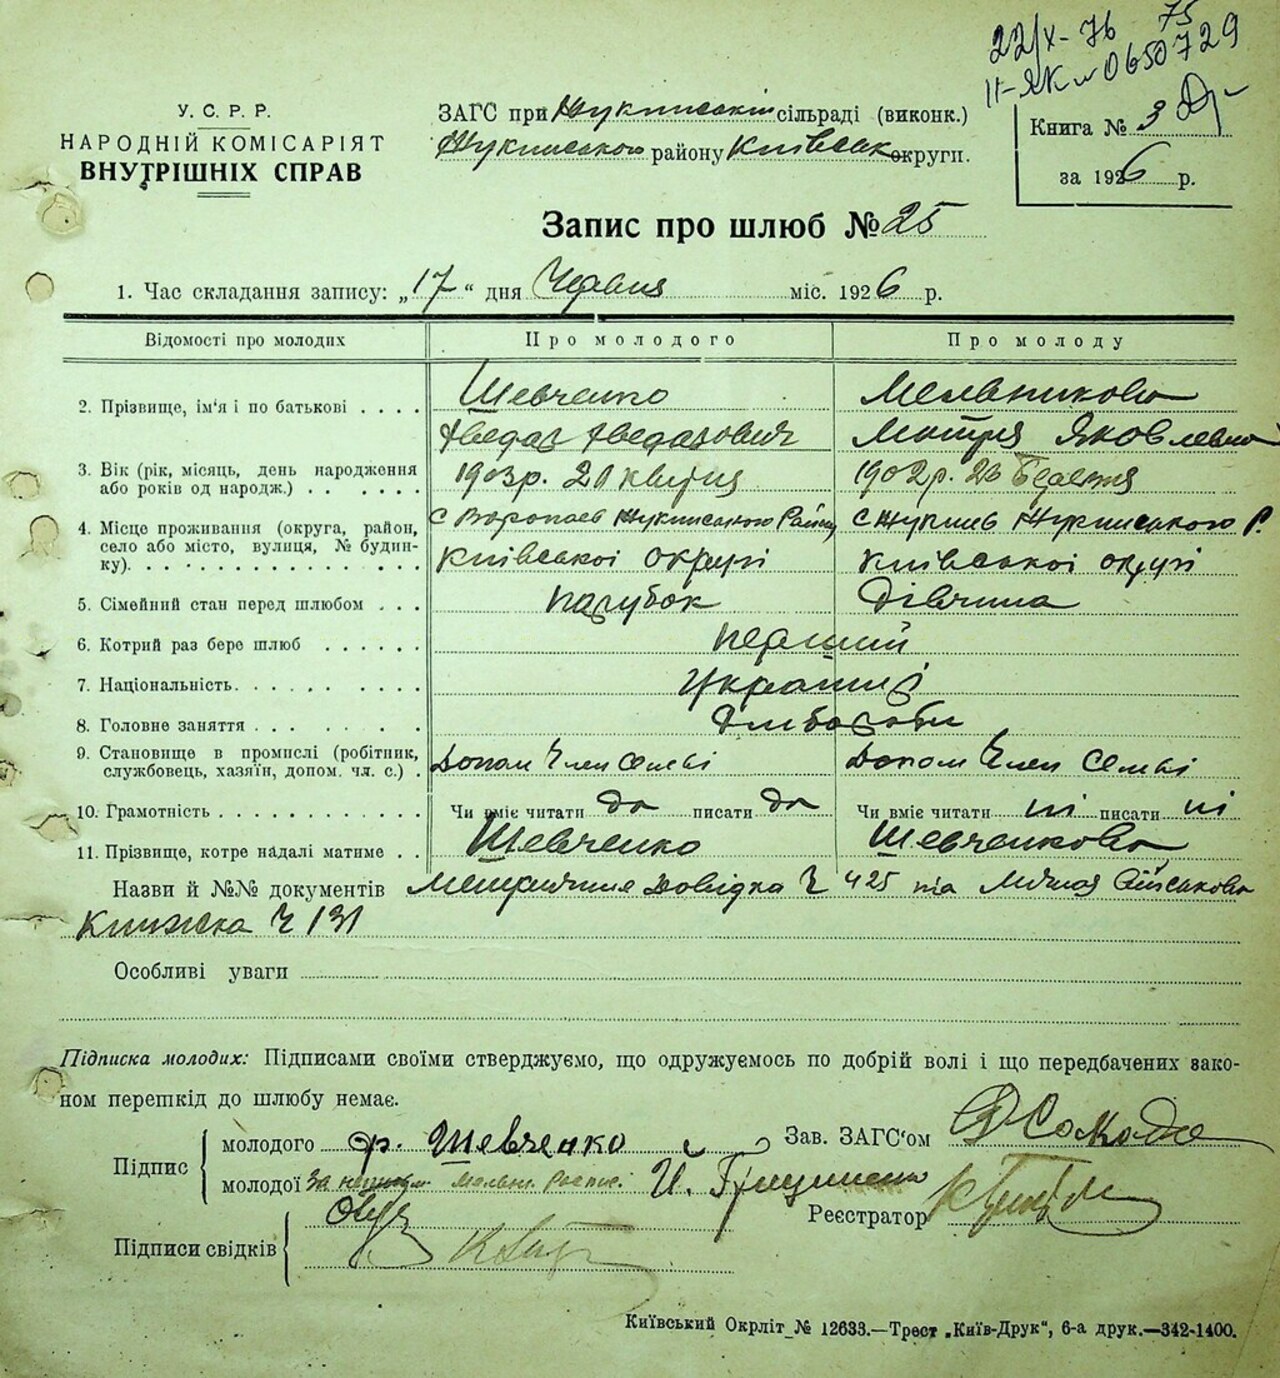 22/X-76 75
II-ЯК № 0650729
У.С.Р.Р.
НАРОДНІЙ КОМІСАРІЯТ
ВНУТРІШНІХ СПРАВ
ЗАГС при Жукинській сільраді (виконк.)
Жукинського району Київськ округи.
Книга № 3
за 1926 р.
Запис про шлюб № 25
1. Час складання запису: „17“ дня Червня міс. 1926 р.
Відомості про молодих Про молодого Про молоду
2. Прізвище, ім'я і по батькові . . . . Шевченко Мельникова
Матрия Яковлевна
3. Вік (рік, місяць, день народження 1903р. 21 квітня 1902р. 23 Березня
або років од народж.) . . . . . . .
4. Місце проживання (округа, район, с Воропаев Жукинського Району с Жукинь Жукинського Р.
село або місто, вулиця, № будин-
ку). . . . . . . . . . . . . . . Київської округі Київської округі
5. Сімейний стан перед шлюбом . . . парубок Дівчина
6. Котрий раз бере шлюб . . . . . . перший
7. Національність. . . . . . . . . . Українці
8. Головне заняття . . . . . . . . . Хлібороби
9. Становище в промислі (робітник,
службовець, хазяїн, допом. чл. с.) . Допом Член Семьі Допом Член Семьі
10. Грамотність . . . . . . . . . . . Чи вміє читати да писати да Чи вміє читати ні писати ні
11. Прізвище, котре надалі матиме . . Шевченко Шевченкова
Назви й №№ документів Метрична Довідка Ч 425 та Лічная Військова
Книжка Ч 131
Особливі уваги
Підписка молодих: Підписами своїми стверджуємо, що одружуємось по добрій волі і що передбачених зако-
ном перешкід до шлюбу немає.
Підпис
молодого ф. Шевченко
Зав. ЗАГС'ом
молодої За Мельн. распис. И. Грищенко
Реєстратор
Підписи свідків
Київський Окрліт № 12633.—Трест „Київ-Друк“, 6-а друк.—342-1400.